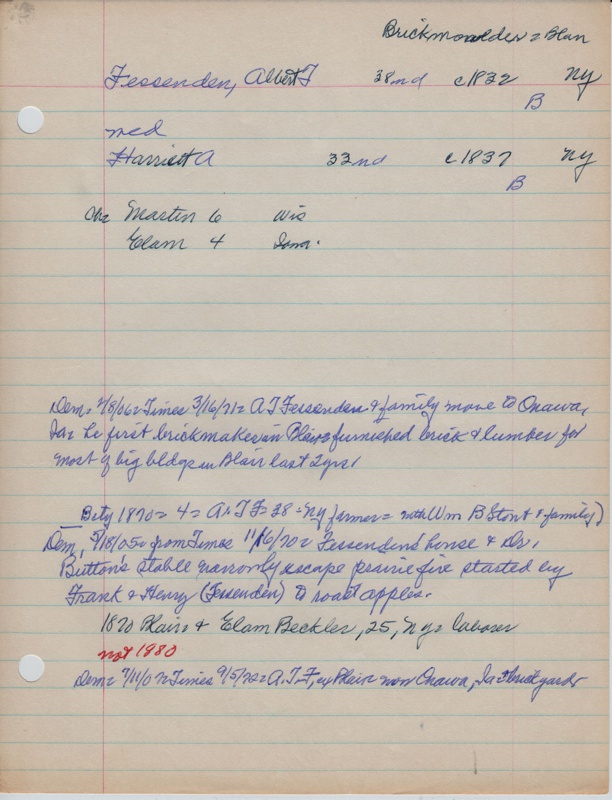 Brickmoulder = Blair
Fessenden, Albert T 38nd c1832 NY
B
med
Harriett A 33nd c1837 NY
B
Ch= Martin 6 Wis
Elam 4 Iowa.
Dem= 2/8/06= Times 3/16/71= A T Fessenden & family move to Onawa,
Ia= he first brickmaker in Blair= furnished brick & lumber for
most of big bldgs in Blair last 2 yrs.
1870= 4= A. T F= 38= NY farmer= with Wm B Stout & family)
Dem, 5/18/05= from Times 11/16/70= Fessendens' house & Dr.
Button's stable narrowly escape prairie fire started by
Frank & Henry (Fessenden) to roast apples.
1870 Blair= & Elam Beckler, 25, NY= laborer
not 1880
Dem= 7/11/07= Times 9/5/72= A. T. F, ex Blair= now Onawa, Ia= brickyards